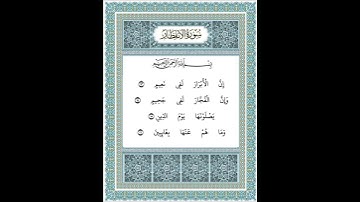 سُورَةُ الِانفِطَارِ
بِسْمِ اللَّهِ الرَّحْمَٰنِ الرَّحِيمِ
إِنَّ الْأَبْرَارَ لَفِي نَعِيمٍ
وَإِنَّ الْفُجَّارَ لَفِي جَحِيمٍ
يَصْلَوْنَهَا يَوْمَ الدِّينِ
وَمَا هُمْ عَنْهَا بِغَائِبِينَ